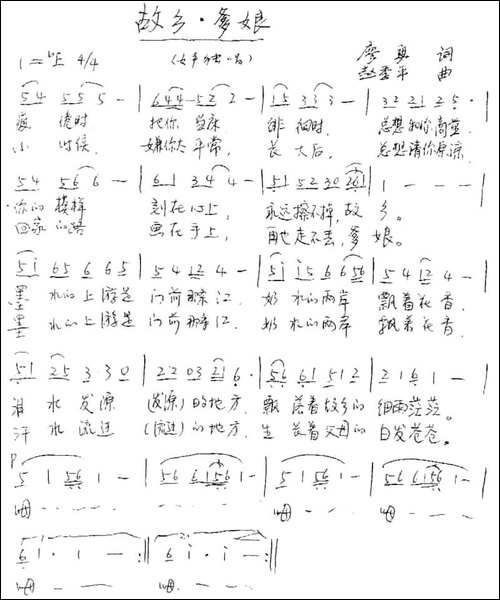 故乡·爹娘
1=♭E 4/4 (女声独唱) 廖 词
曲
5 4 5 5 5 - | 6 4 4 5 2 2 - | 1 5 3 3 3 - | 3 2 2 1 2 5 · |
疲倦时 把你当床, 徘徊时, 总想和你商量,
小时候, 嫌你太平常, 长大后, 总想请你原谅,
5 4 5 6 6 - | 6 1 3 4 4 - | 5 1 5 2 3 0 2 6 1 | 1 - - - |
你的模样 刻在心上, 永远擦不掉,故乡。
回家的路 画在手上, 再也走不丢,爹娘。
5 i 6 5 6 6 5 | 5 4 1 2 4 - | 5 i i 5 6 6 5 6 | 5 4 1 2 4 - |
墨水的上游是 门前那条江, 奶水的两岸 飘着花香,
墨水的上游是 门前那条江, 奶水的两岸 飘着花香,
5 1 2 5 3 3 0 | 2 2 0 3 2 1 6 · | 5 6 6 1 5 1 2 | 2 1 6 1 - |
泪水发源 (发源)的地方, 飘落着故乡的 细雨茫茫。
汗水流过 (流过)的地方, 生长着父母的 白发苍苍。
P
5 1 5 6 1 - | 5 6 6 1 5 6 1 - | 5 1 5 6 1 - | 5 6 6 1 5 6 1 - |
呣 - - - 呣 - - - 呣 - - -
1. 2.
6 1 · 1 - :‖ 6 i · i - :‖
呣 - - - 呣 - - -